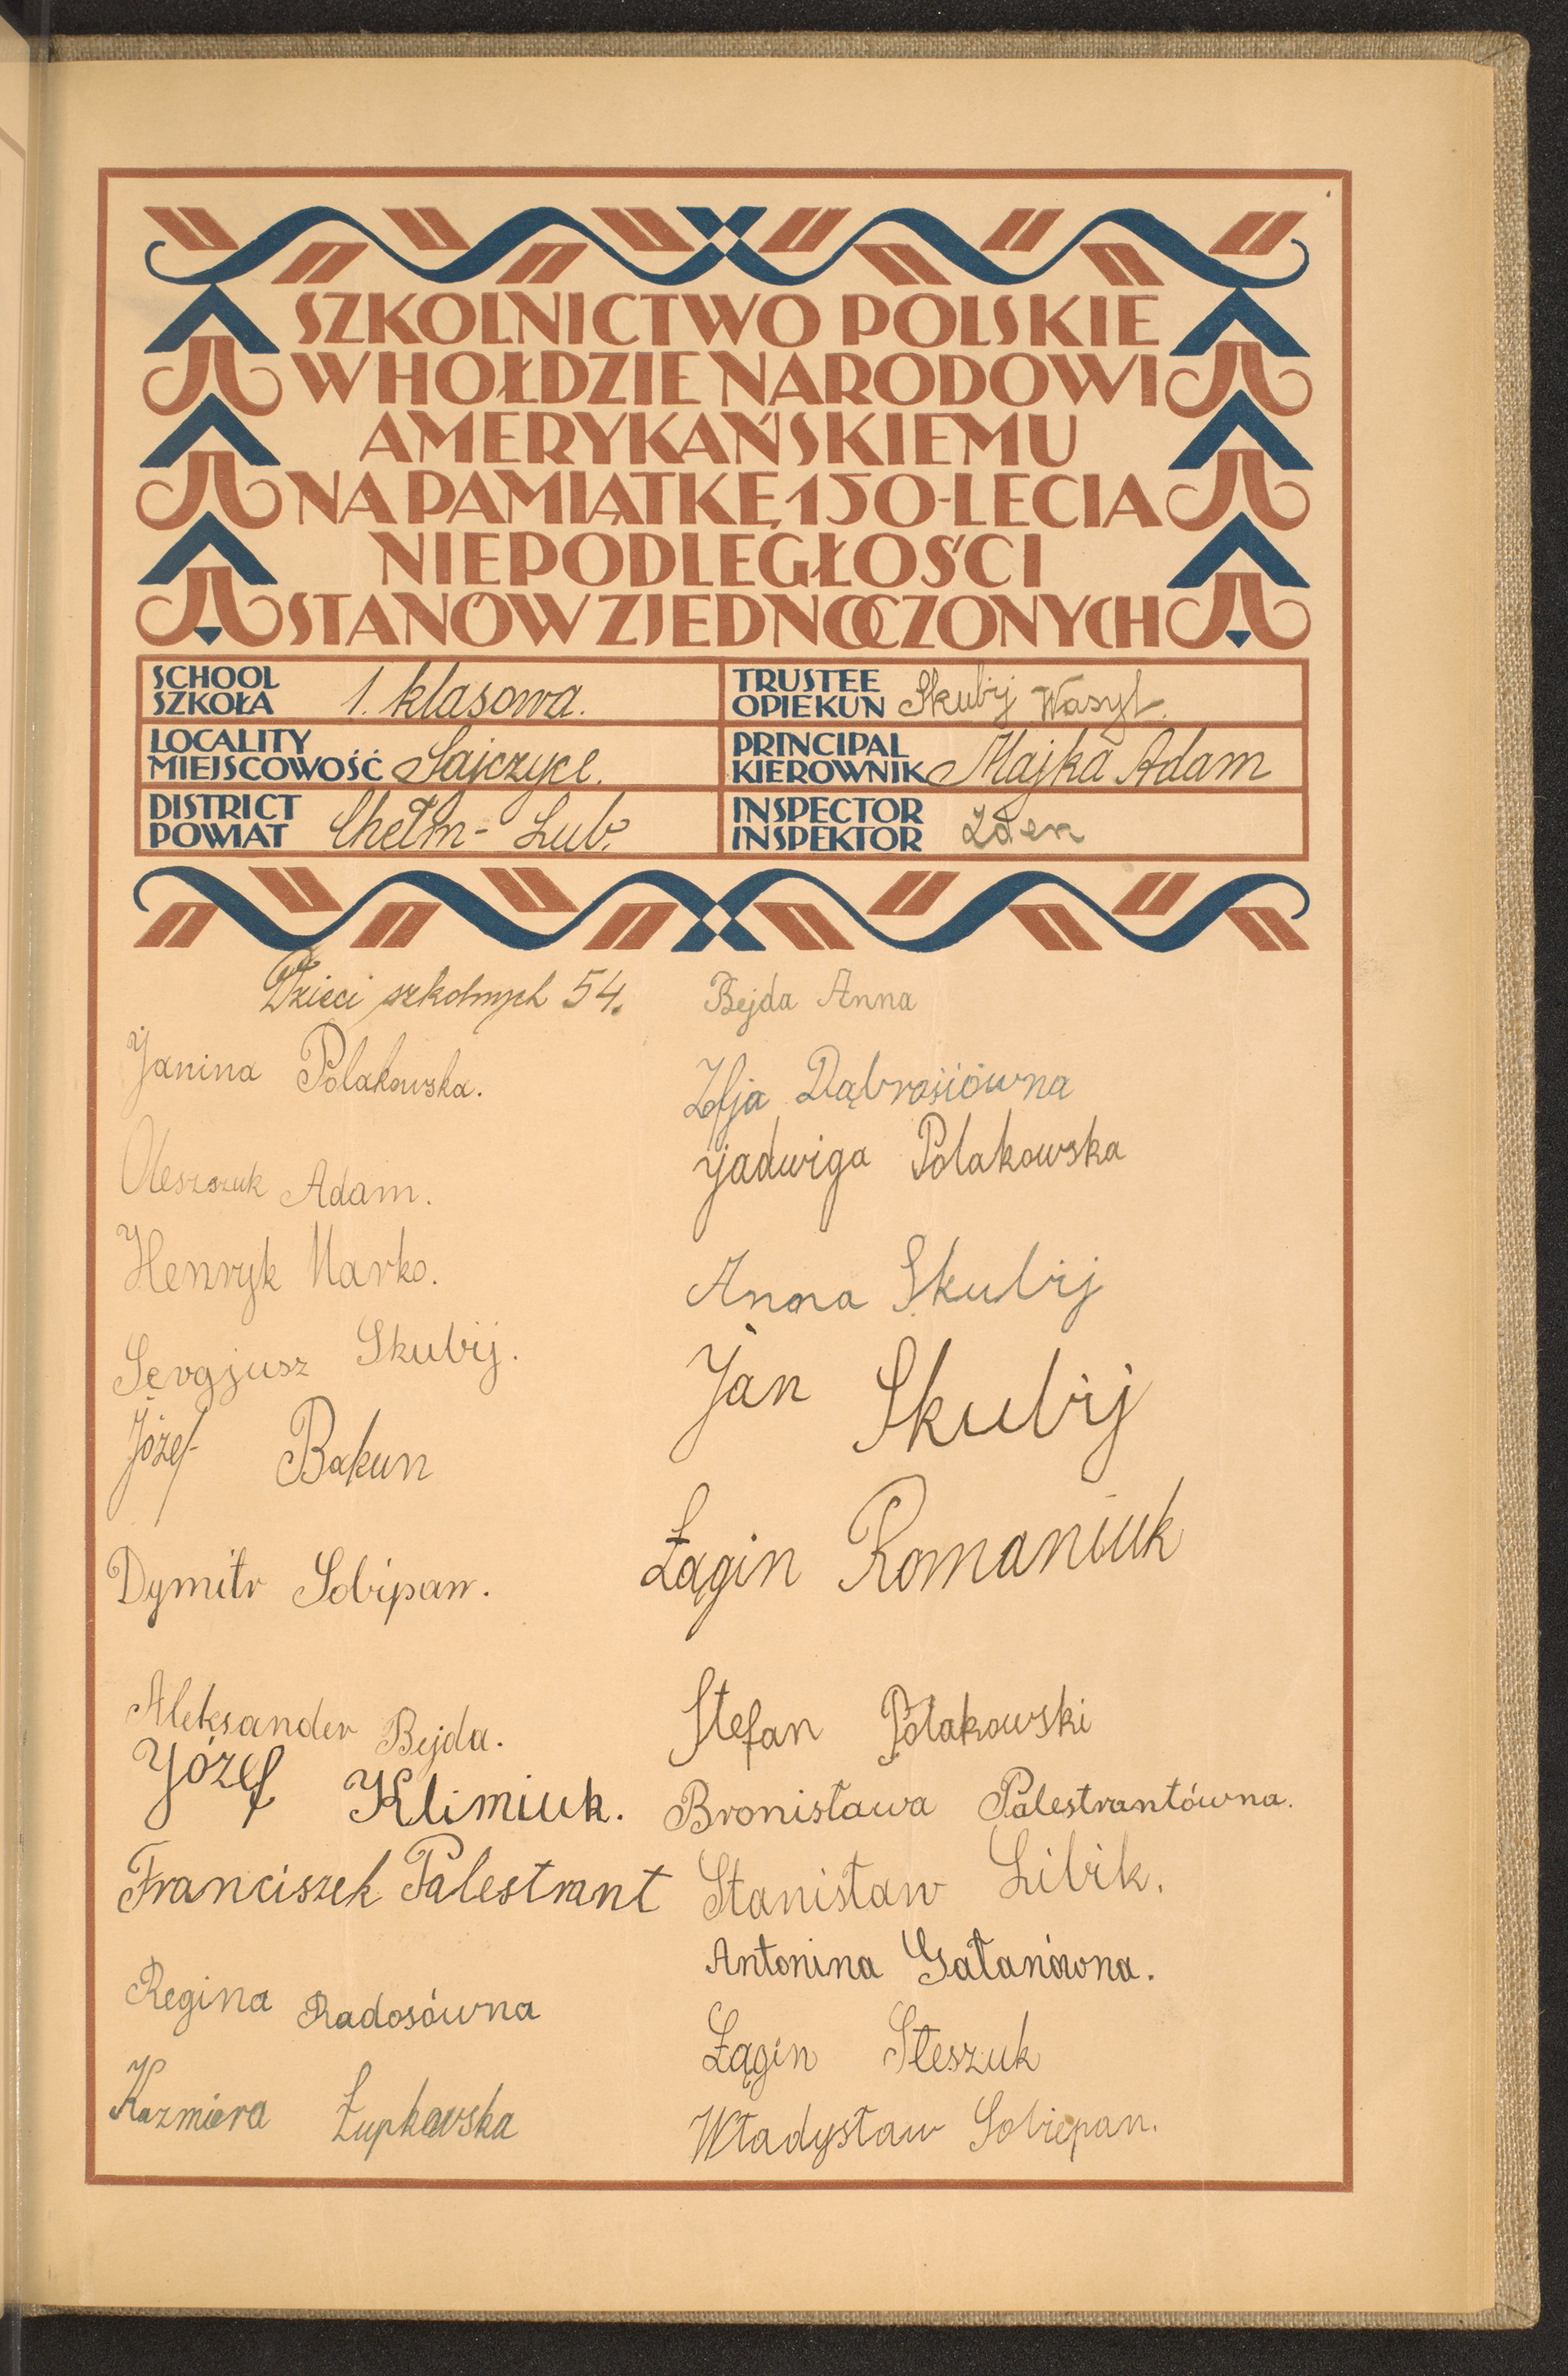 SZKOLNICTWO POLSKIE
W HOŁDZIE NARODOWI
AMERYKAŃSKIEMU
NA PAMIĄTKĘ 150-LECIA
NIEPODLEGŁOŚCI
STANÓW ZJEDNOCZONYCH
SCHOOL
SZKOŁA 1. klasowa.
TRUSTEE
OPIEKUN Skubij Wasyl.
LOCALITY
MIEJSCOWOŚĆ Sajczyce.
PRINCIPAL
KIEROWNIK Majka Adam
DISTRICT
POWIAT Chełm-Lub.
INSPECTOR
INSPEKTOR
Dzieci szkolnych 54.
Janina Polakowska.
Oleszczuk Adam.
Henryk Marko.
Sergjusz Skubij.
Józef Bakun
Dymitr Sobipan.
Aleksander Bejda.
Józef Klimiuk.
Franciszek Palestrant
Regina Radosówna
Kazmiera Łupkowska
Bejda Anna
Zofja Dąbrosiówna
Jadwiga Polakowska
Anna Skubij
Jan Skubij
Łągin Romaniuk
Stefan Polakowski
Bronisława Palestrantówna.
Stanisław Libik.
Antonina Gałanówna.
Łągin Steszuk
Władysław Sobiepan.